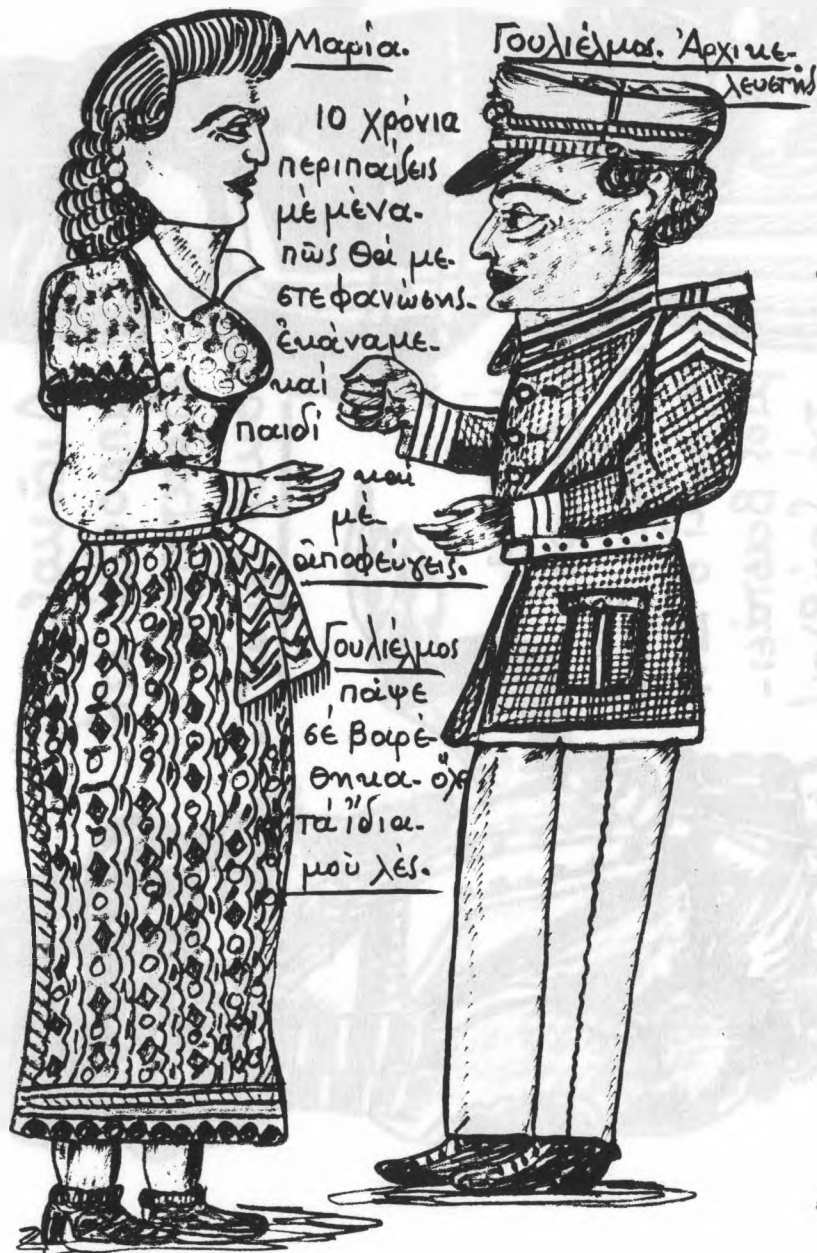 Μαρία.
Γουλιέλμος. Ἀρχικε-
λευστής
10 χρόνια
περιπαίζεις
μὲ μὲνα-
πῶς θά με-
στεφανώσης-
ἐκάναμε-
καί
παιδί
καί
μέ-
ἀποφεύγεις.
Γουλιέλμος
πάψε
σέ βαρέ-
θηκα- ὅλο
τά ἴδια-
μοὺ λές.